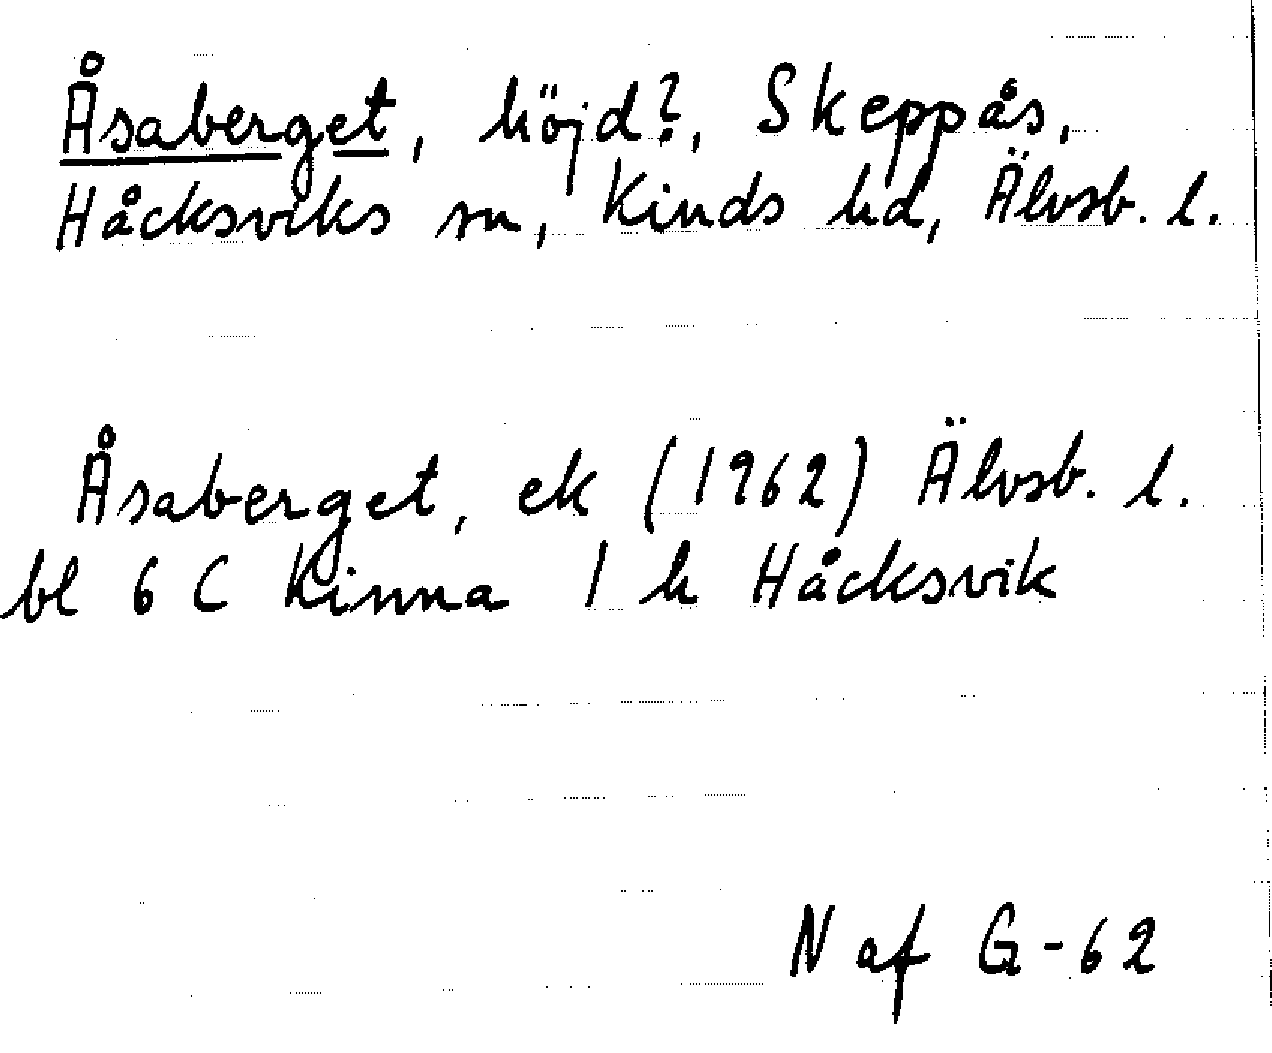 Åsaberget, höjd?, Skeppås,
Håcksviks sn, Kinds hd, Älvsb. l.
Åsaberget, ek (1962) Älvsb. l.
bl 6 C Kinna 1 h Håcksvik
N af G-62